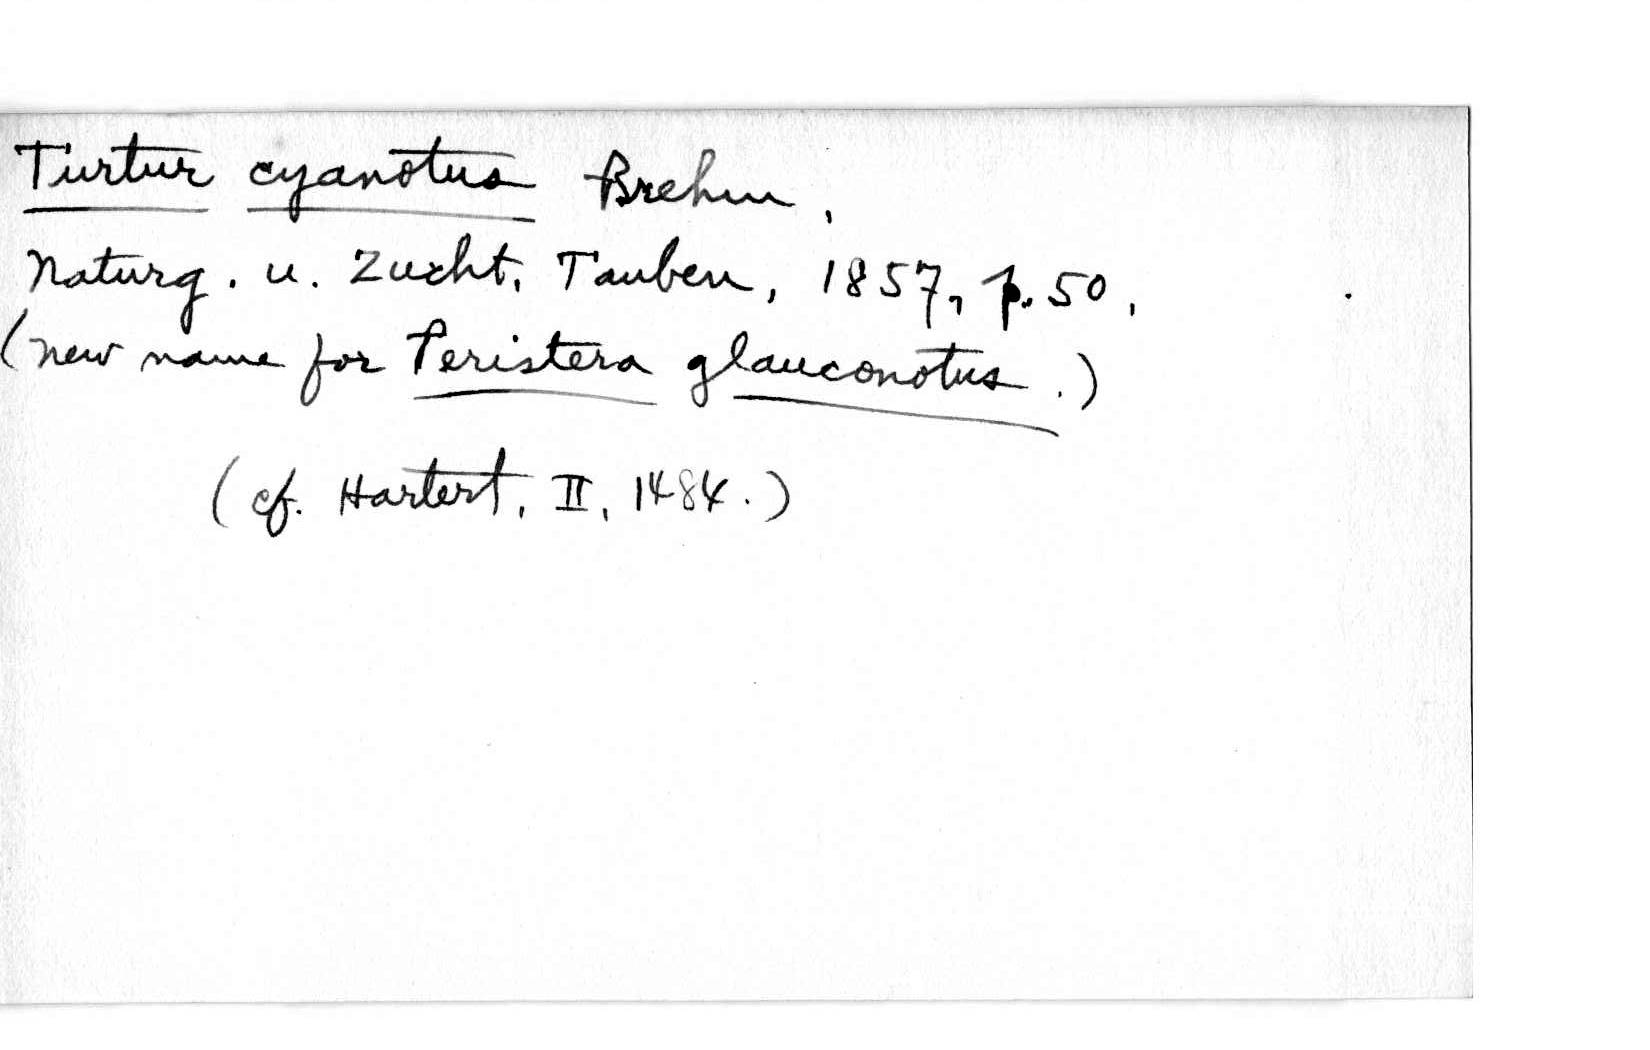 Turtur cyanotus Brehm,
Naturg. u. Zucht. Tauben, 1857, p. 50,
(new name for Peristera glauconotus.)
(cf. Hartert, II, 1484.)